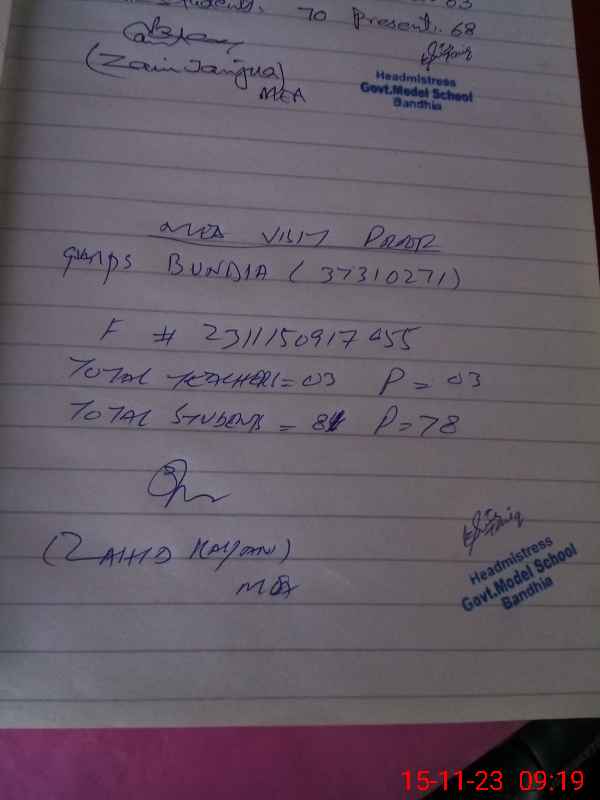 Students. 70 Present. 68
(Zain Janjua)
MEA
Headmistress
Govt.Model School
Bandhia
MEA VISIT PROOF
GGMPS BUNDIA (37310271)
F # 2311150917455
TOTAL TEACHERS = 03 P = 03
TOTAL STUDENTS = 81 P = 78
(ZAHID KAYANI)
MEA
Headmistress
Govt.Model School
Bandhia
15-11-23 09:19